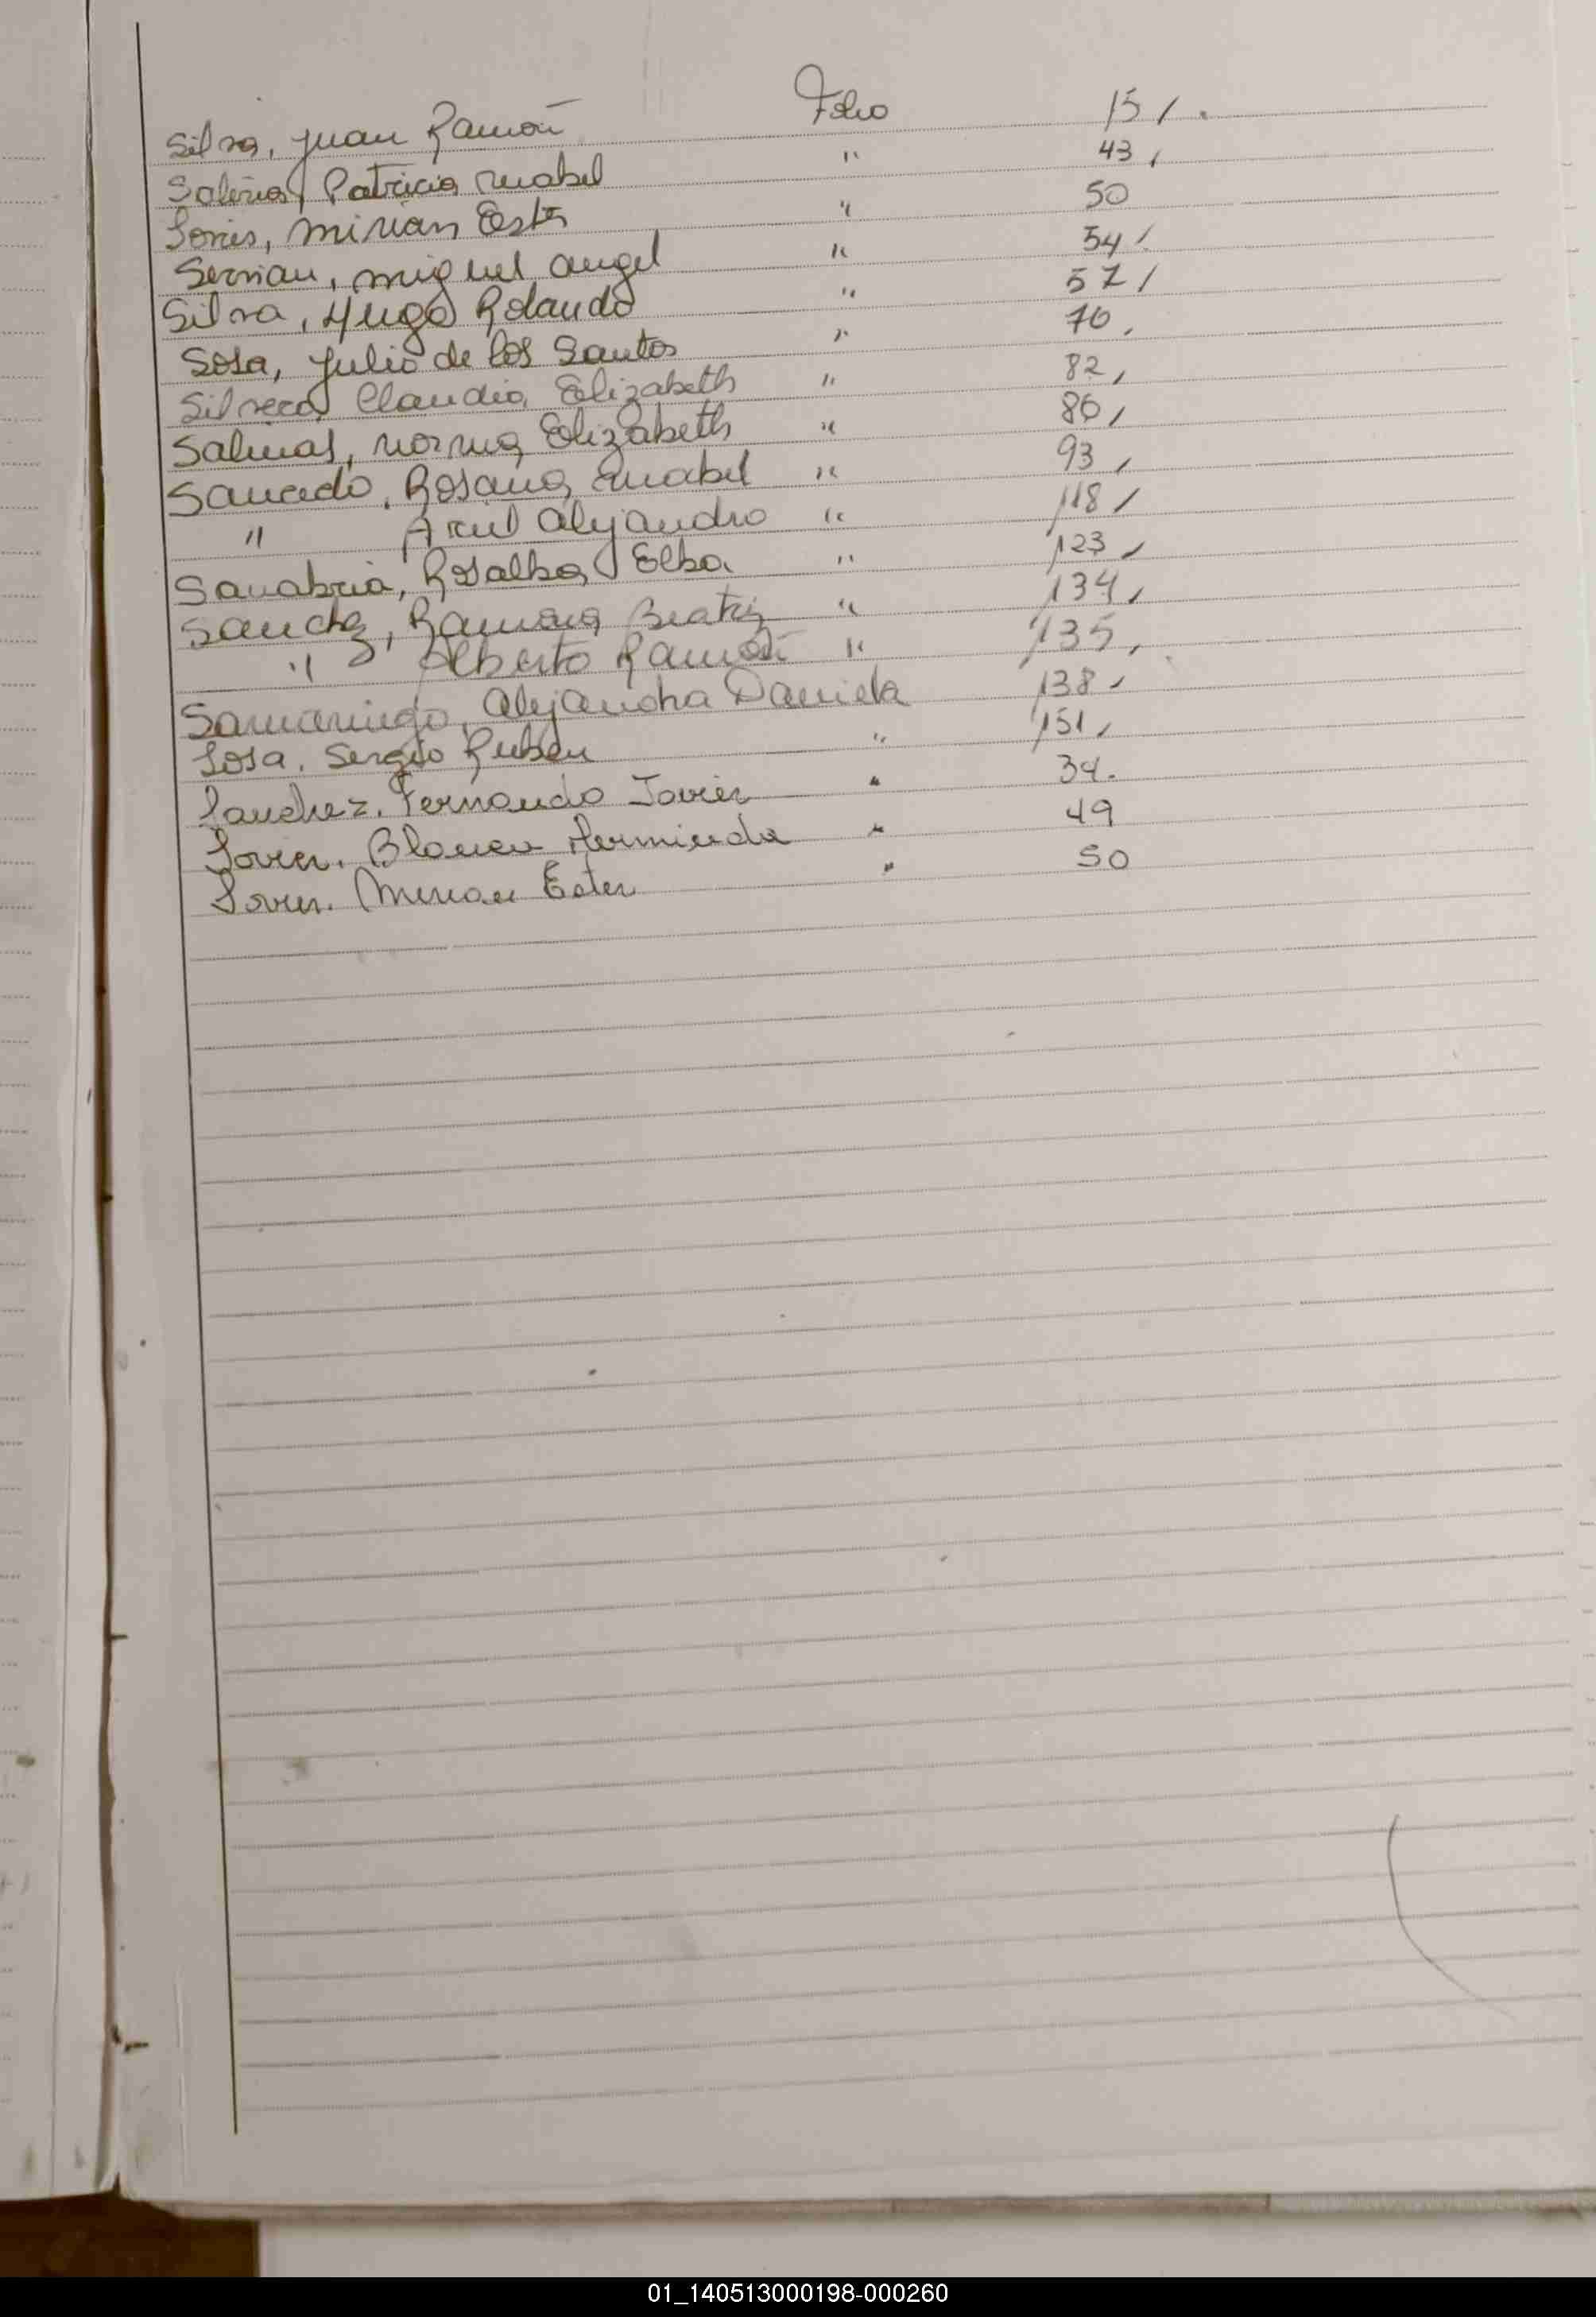 Silva, Juan Ramón Folio 15/.
Patricia Mabel " 43,
Mirian Ester " 50
Miguel Angel " 54/.
Silva, Hugo Rolando " 57/
Sosa, Julio de los Santos " 76,
Claudia Elizabeth " 82,
Salinas, Norma Elizabeth " 86,
Saucedo, Rosana Mabel " 93,
" Ariel Alejandro " 118/
Sanabria, Rosalba Elba " 123,
Sanchez, Ramona Beatriz " 134,
" Alberto Ramón " 135,
Samaniego, Alejandra Daniela 138,
Sosa, Sergio Ruben " 151,
Sanchez, Fernando Javier " 34.
Blanca Herminda " 49
Mirian Ester " 50
01_140513000198-000260